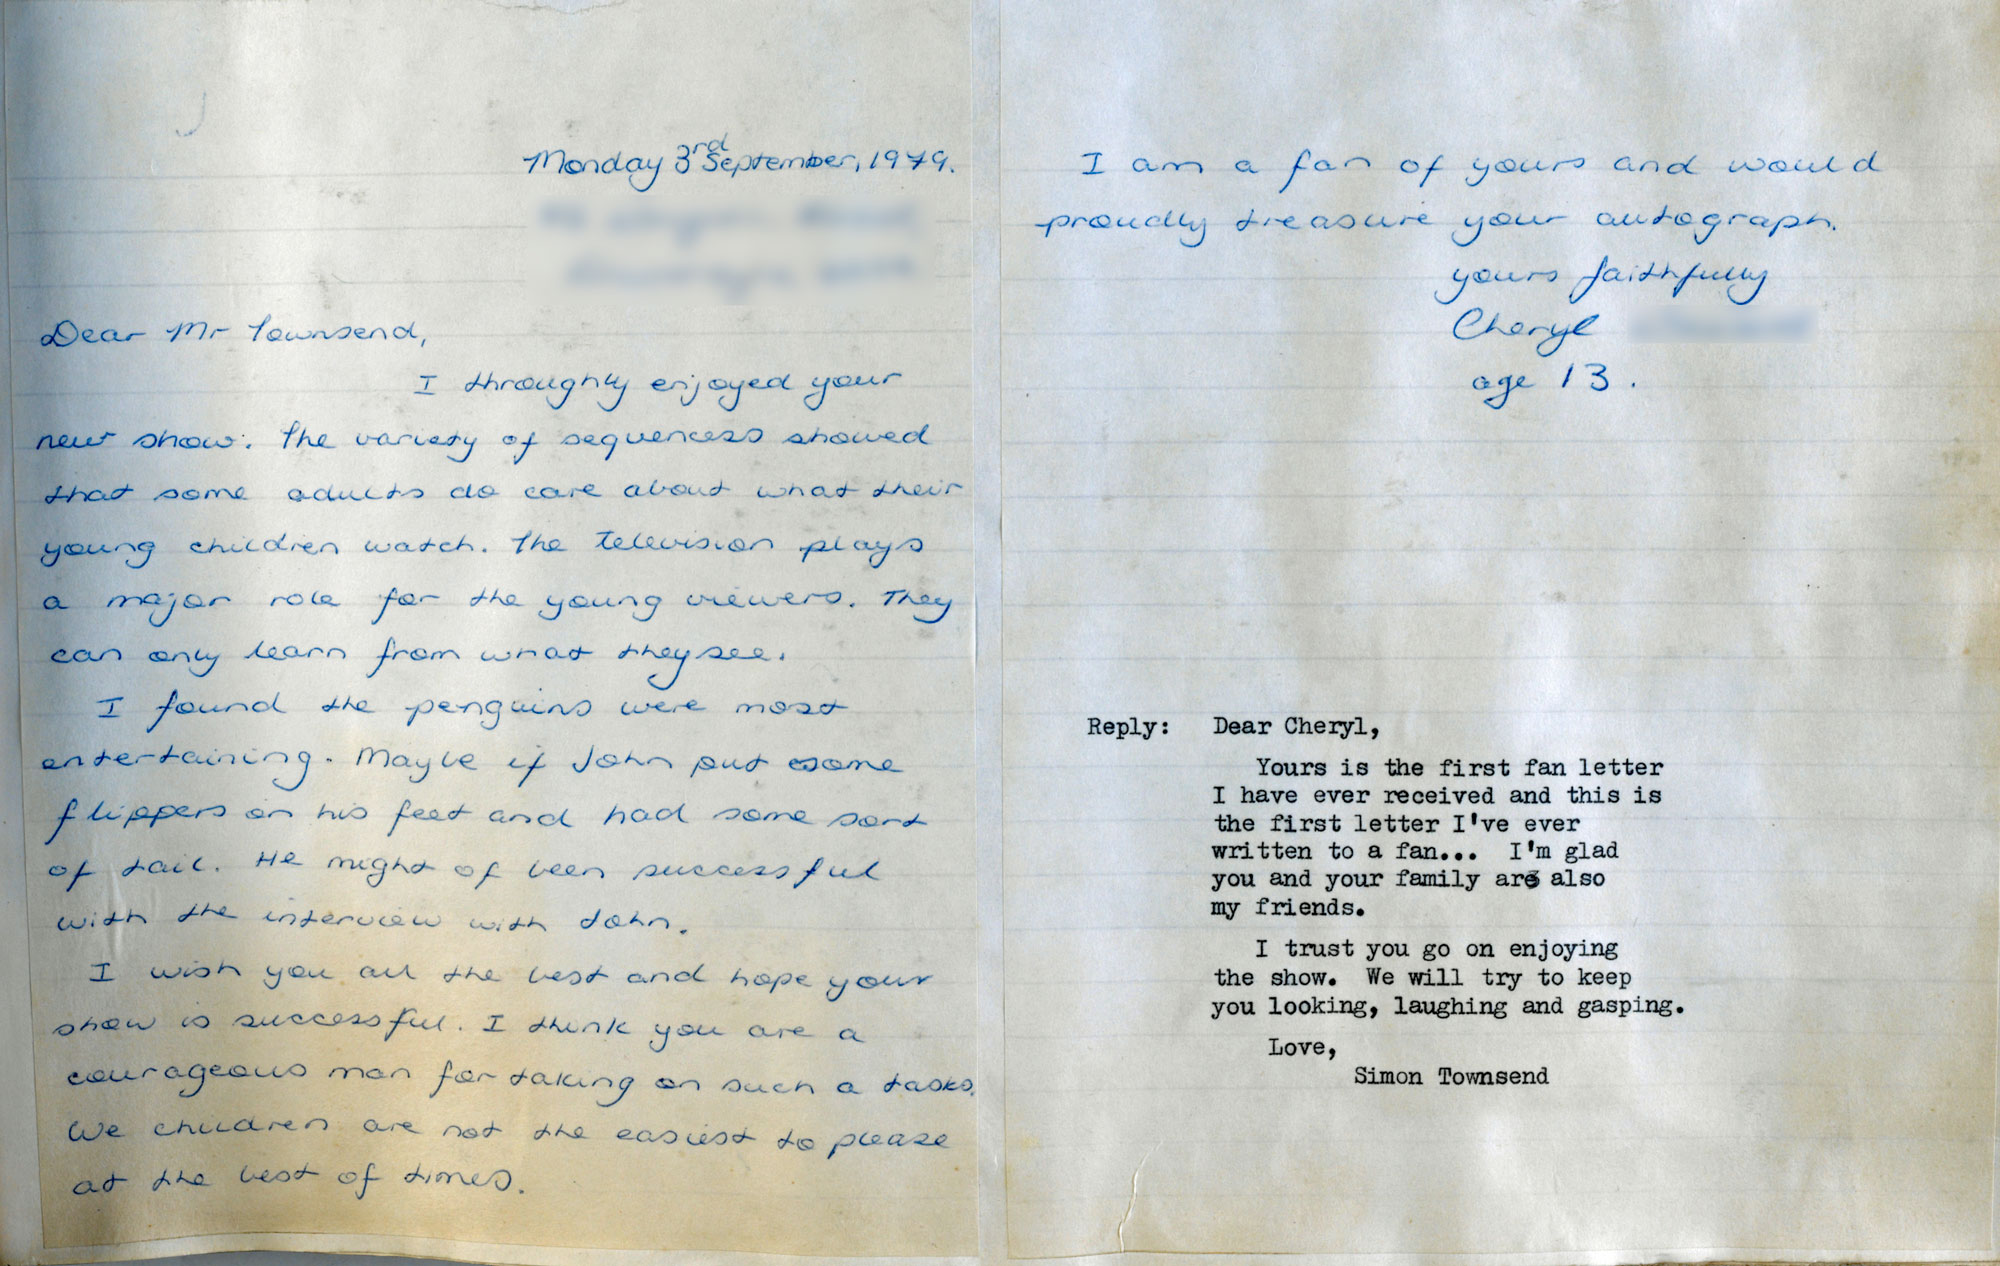 Monday 3rd September, 1979.
Dear Mr Townsend,
I throughly enjoyed your
new show. The variety of sequencess showed
that some adults do care about what their
young children watch. The television plays
a major role for the young viewers. They
can only learn from what they see.
I found the penguins were most
entertaining. Maybe if John put some
flippers on his feet and had some sort
of tail. He might of been successful
with the interview with John.
I wish you all the best and hope your
show is successful. I think you are a
courageous man for taking on such a tasks.
We children are not the easiest to please
at the best of times.
I am a fan of yours and would
proudly treasure your autograph.
yours faithfully
Cheryl
age 13.
Reply: Dear Cheryl,
Yours is the first fan letter
I have ever received and this is
the first letter I've ever
written to a fan... I'm glad
you and your family are also
my friends.
I trust you go on enjoying
the show. We will try to keep
you looking, laughing and gasping.
Love,
Simon Townsend